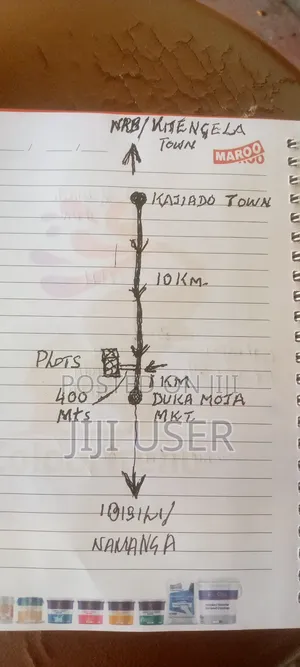 NRB/KITENGELA
TOWN
MAROO
KAJIADO TOWN
10KM.
PLOTS
POSTED ON JIJI
1KM
400
Mts
DUKA MOJA
MKT.
JIJI USER
NAMANGA